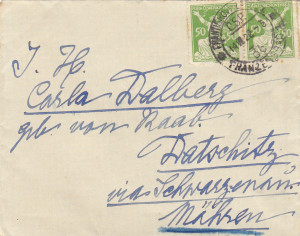 50
50
I. H.
Carla Dalberg
gb von Raab.
Datschitz
via Schwarzenau
Mähren